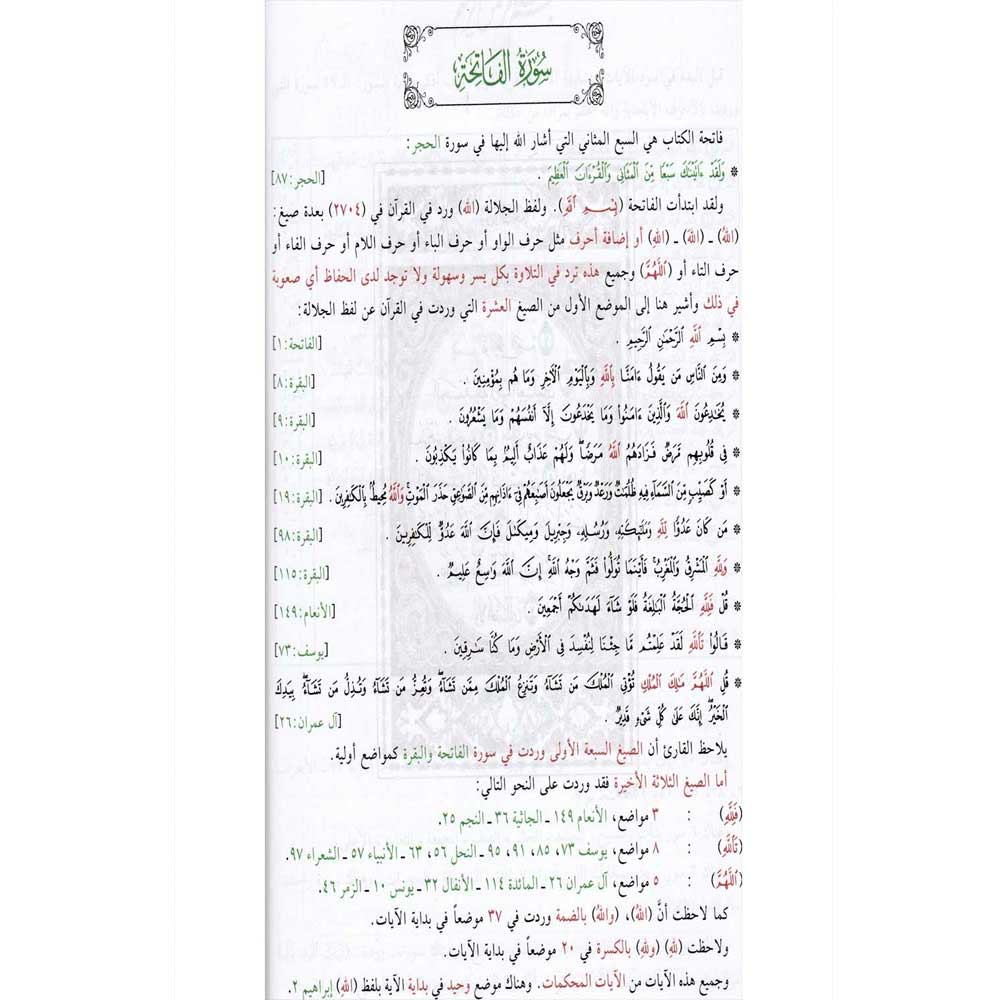 سُورَةُ الفَاتِحَةِ
فاتحة الكتاب هي السبع المثاني التي أشار الله إليها في سورة الحجر:
* وَلَقَدْ ءَاتَيْنَٰكَ سَبْعًا مِّنَ ٱلْمَثَانِى وَٱلْقُرْءَانَ ٱلْعَظِيمَ . [الحجر: ٨٧]
ولقد ابتدأت الفاتحة (بِسْمِ ٱللَّهِ). ولفظ الجلالة (الله) ورد في القرآن في (٢٧٠٤) بعدة صيغ:
(اللهُ) ـ (اللهَ) ـ (اللهِ) أو إضافة أحرف مثل حرف الواو أو حرف الباء أو حرف اللام أو حرف الفاء أو
حرف التاء أو (ٱللَّهُمَّ) وجميع هذه ترد في التلاوة بكل يسر وسهولة ولا توجد لدى الحفاظ أي صعوبة
في ذلك وأشير هنا إلى الموضع الأول من الصيغ العشرة التي وردت في القرآن عن لفظ الجلالة:
* بِسْمِ ٱللَّهِ ٱلرَّحْمَٰنِ ٱلرَّحِيمِ . [الفاتحة: ١]
* وَمِنَ ٱلنَّاسِ مَن يَقُولُ ءَامَنَّا بِٱللَّهِ وَبِٱلْيَوْمِ ٱلْءَاخِرِ وَمَا هُم بِمُؤْمِنِينَ . [البقرة: ٨]
* يُخَٰدِعُونَ ٱللَّهَ وَٱلَّذِينَ ءَامَنُوا۟ وَمَا يَخْدَعُونَ إِلَّآ أَنفُسَهُمْ وَمَا يَشْعُرُونَ . [البقرة: ٩]
* فِى قُلُوبِهِم مَّرَضٌ فَزَادَهُمُ ٱللَّهُ مَرَضًا ۖ وَلَهُمْ عَذَابٌ أَلِيمٌۢ بِمَا كَانُوا۟ يَكْذِبُونَ . [البقرة: ١٠]
* أَوْ كَصَيِّبٍ مِّنَ ٱلسَّمَآءِ فِيهِ ظُلُمَٰتٌ وَرَعْدٌ وَبَرْقٌ يَجْعَلُونَ أَصَٰبِعَهُمْ فِىٓ ءَاذَانِهِم مِّنَ ٱلصَّوَٰعِقِ حَذَرَ ٱلْمَوْتِ ۚ وَٱللَّهُ مُحِيطٌۢ بِٱلْكَٰفِرِينَ . [البقرة: ١٩]
* مَن كَانَ عَدُوًّا لِّلَّهِ وَمَلَٰٓئِكَتِهِۦ وَرُسُلِهِۦ وَجِبْرِيلَ وَمِيكَىٰلَ فَإِنَّ ٱللَّهَ عَدُوٌّ لِّلْكَٰفِرِينَ . [البقرة: ٩٨]
* وَلِلَّهِ ٱلْمَشْرِقُ وَٱلْمَغْرِبُ ۚ فَأَيْنَمَا تُوَلُّوا۟ فَثَمَّ وَجْهُ ٱللَّهِ ۚ إِنَّ ٱللَّهَ وَٰسِعٌ عَلِيمٌ . [البقرة: ١١٥]
* قُلْ فَلِلَّهِ ٱلْحُجَّةُ ٱلْبَٰلِغَةُ ۖ فَلَوْ شَآءَ لَهَدَىٰكُمْ أَجْمَعِينَ . [الأنعام: ١٤٩]
* قَالُوا۟ تَٱللَّهِ لَقَدْ عَلِمْتُم مَّا جِئْنَا لِنُفْسِدَ فِى ٱلْأَرْضِ وَمَا كُنَّا سَٰرِقِينَ . [يوسف: ٧٣]
* قُلِ ٱللَّهُمَّ مَٰلِكَ ٱلْمُلْكِ تُؤْتِى ٱلْمُلْكَ مَن تَشَآءُ وَتَنزِعُ ٱلْمُلْكَ مِمَّن تَشَآءُ وَتُعِزُّ مَن تَشَآءُ وَتُذِلُّ مَن تَشَآءُ ۖ بِيَدِكَ
ٱلْخَيْرُ ۖ إِنَّكَ عَلَىٰ كُلِّ شَىْءٍ قَدِيرٌ . [آل عمران: ٢٦]
يلاحظ القارئ أن الصيغ السبعة الأولى وردت في سورة الفاتحة والبقرة كمواضع أولية.
أما الصيغ الثلاثة الأخيرة فقد وردت على النحو التالي:
(فَلِلَّهِ) : ٣ مواضع، الأنعام ١٤٩ ـ الجاثية ٣٦ ـ النجم ٢٥.
(تَٱللَّهِ) : ٨ مواضع، يوسف ٧٣، ٨٥، ٩١، ٩٥ ـ النحل ٥٦، ٦٣ ـ الأنبياء ٥٧ ـ الشعراء ٩٧.
(ٱللَّهُمَّ) : ٥ مواضع، آل عمران ٢٦ ـ المائدة ١١٤ ـ الأنفال ٣٢ ـ يونس ١٠ ـ الزمر ٤٦.
كما لاحظت أنَّ (اللهُ)، (واللهُ) بالضمة وردت في ٣٧ موضعاً في بداية الآيات.
ولاحظت (للهِ) (وللهِ) بالكسرة في ٢٠ موضعاً في بداية الآيات.
وجميع هذه الآيات من الآيات المحكمات. وهناك موضع وحيد في بداية الآية بلفظ (اللهِ) إبراهيم ٢.